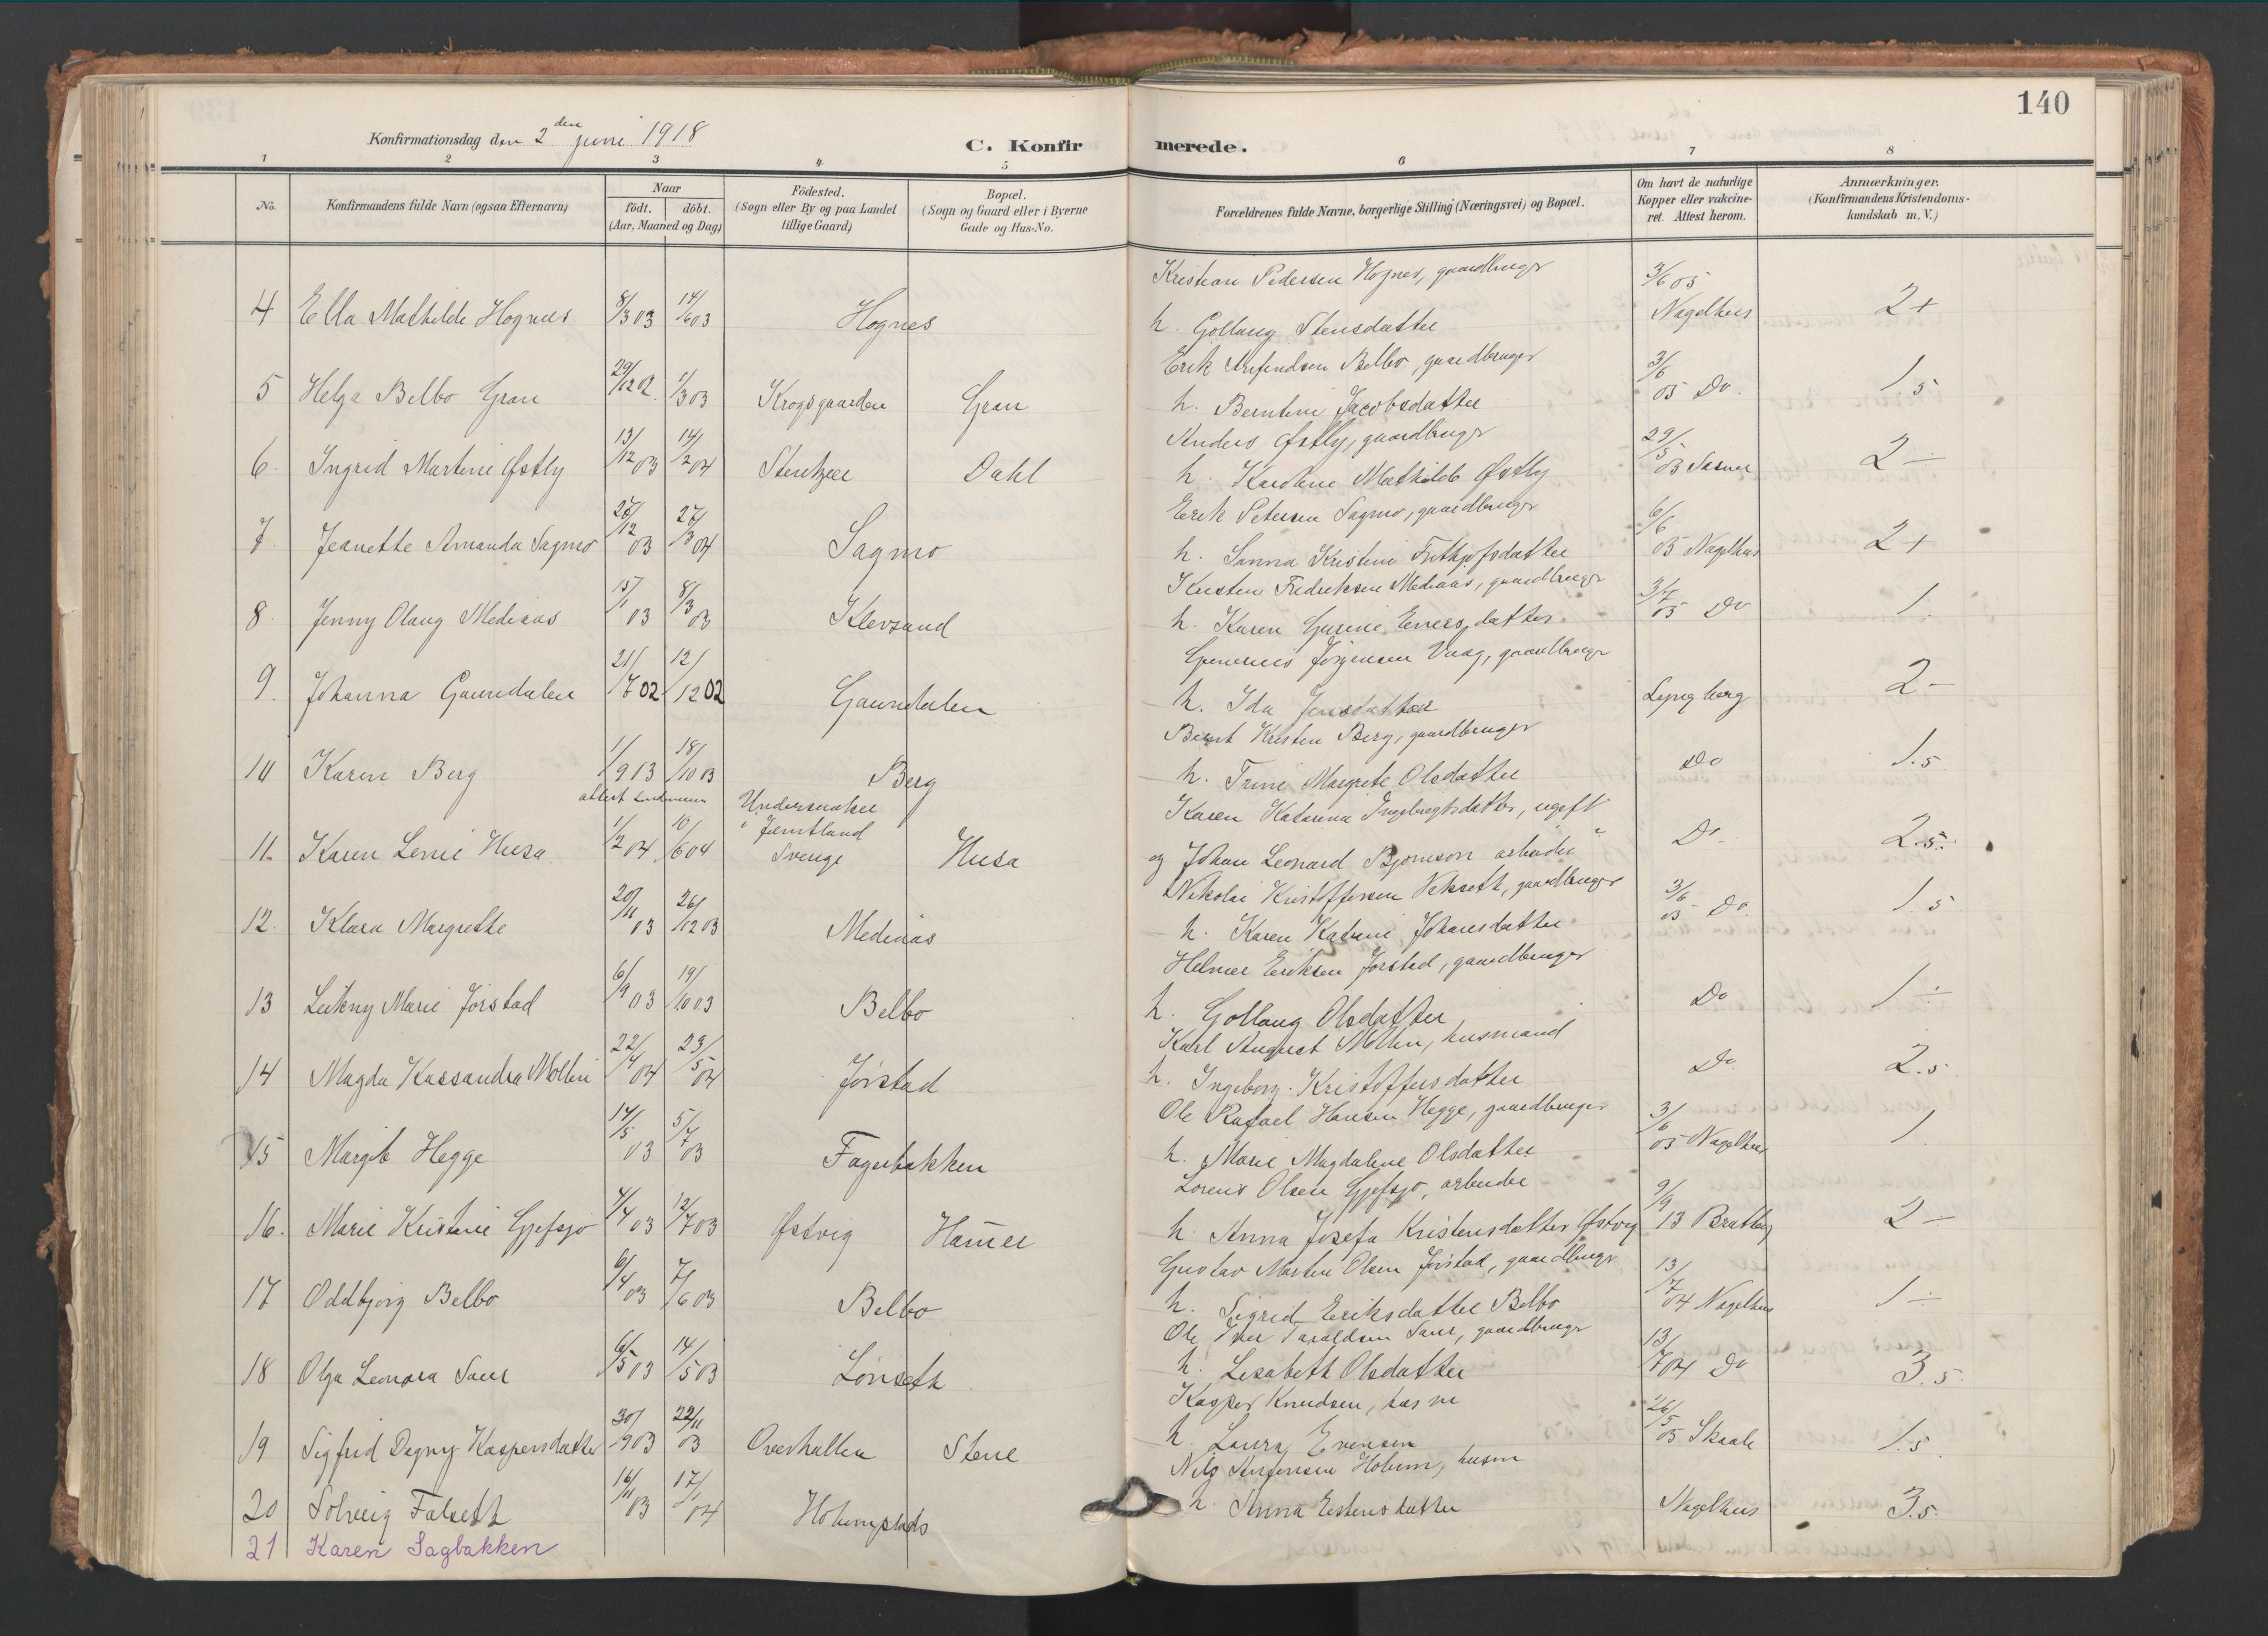 140
Konfirmationsdag den 2den juni 1918
C. Konfirmerede.
1 2 3 4 5 6 7 8
No.
Konfirmandens fulde Navn (ogsaa Efternavn)
Naar
födt. döbt.
(Aar, Maaned og Dag)
Födested.
(Sogn eller By og paa Landet
tillige Gaard)
Bopæl.
(Sogn og Gaard eller i Byerne
Gade og Hus-No.
Forældrenes fulde Navne, borgerlige Stilling (Næringsvei) og Bopæl.
Om havt de naturlige
Kopper eller vakcine-
ret. Attest herom.
Anmærkninger.
(Konfirmandens Kristendoms-
kundskab m. V.)
Kristian Pedersen Hognes, gaardbruger 3/6 05
4 Ella Mathilde Hognes 8/3 03 14/6 03 Hognes h. Gollaug Stensdatter Nagelhus 2+
Erik Arnfindsen Belbo, gaardbruger 3/6
5 Helga Belbo Gran 29/12 02 1/3 03 Krogsgaarden Gran h. Berntine Jacobsdatter 05 Do. 1.5
Anders Østly, gaardbruger 29/5
6. Ingrid Martine Østly 13/12 03 14/2 04 Dahl h. Karoline Mathilde Østly 03 2-
Erik Petersen Sagmo, gaardbruger 6/6
7. Jeanette Amanda Sagmo 27/12 03 27/3 04 Sagmo h. Sanna Kristine Frithjofsdatter 05 Nagelhus 2+
Kristen Fredriksen Mediaas, gaardbruger 3/7
8. Jenny Olaug Mediaas 15/1 03 8/3 03 Klevsand h. Karen Gurine Eversdatter 05 Do 1.
Jørgensen Vaag, gaardbruger
9. Johanna Gaundalen 21/7 02 12/12 02 Gaundalen h. Ida Jensdatter Lyngberg 2-
Bernt Kristen Berg, gaardbruger
10 Karen Berg 1/9 03 18/10 03 Berg h. Trine Margrete Olsdatter Do 1.5
attest Undersaker
i Jemtland
Karen Katarina Ingebrigtsdatter, ugift
11. Karen Lenie Husa 1/2 04 10/6 04 Sverige Husa og Johan Leonard Bjørnson arbeider Do. 2.5.
Nikolai Kristoffersen Vekseth, gaardbruger 3/6
12. Klara Margrethe 20/11 03 26/12 03 Mediaas h. Karen Katrine Johansdatter 05 Do. 1.5
Helmer Eriksen Jørstad, gaardbruger
13 Leikny Marie Jørstad 6/9 03 19/10 03 Belbo h. Gollaug Olsdatter Do 1÷
Karl August Mollin, husmand
14 Magda Kassandra Mollin 22/4 04 23/5 04 Jørstad h. Ingeborg Kristoffersdatter Do. 2.5
Ole Rafael Hansen Hegge, gaardbruger 3/6
15 Margit Hegge 14/5 03 5/7 03 Fagerbakken h. Marie Magdalene Olsdatter 05 Nagelhus 1.
Lorens Olsen Gjefsjø, arbeider 9/9
16. Marie Kristine Gjefsjø 4/4 03 12/7 03 Østvig Hammer h. Anna Josefa Kristensdatter Østvig 13 Bratberg 2-
Gustav Martin Olsen Jørstad, gaardbruger 13/7
17 Oddbjørg Belbo 6/4 03 7/6 03 Belbo h. Sigrid Eriksdatter Belbo 04 Nagelhus 1÷
Ole Iver Taraldsen Saur, gaardbruger 13/
18 Olga Leonora Saur 6/5 03 14/5 03 Lønseth h. Lisabeth Olsdatter 7 04 Do 3.5.
Kasper Knudsen, 26/5
19 Sigfrid Dagny Kaspersdatter 30/9 03 22/11 03 Overhallen Stene h. Laura Evensen 05 Skaale 1.5
Nils Arnfinsen Holum, husm
20 Solveig Falseth 16/11 03 17/1 04 Holumplads h. Anna Estensdatter Nagelhus 3.5.
21 Karen Sagbakken